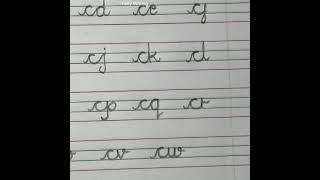 cd ce cf
cj ck cl
cp cq cr
cv cw